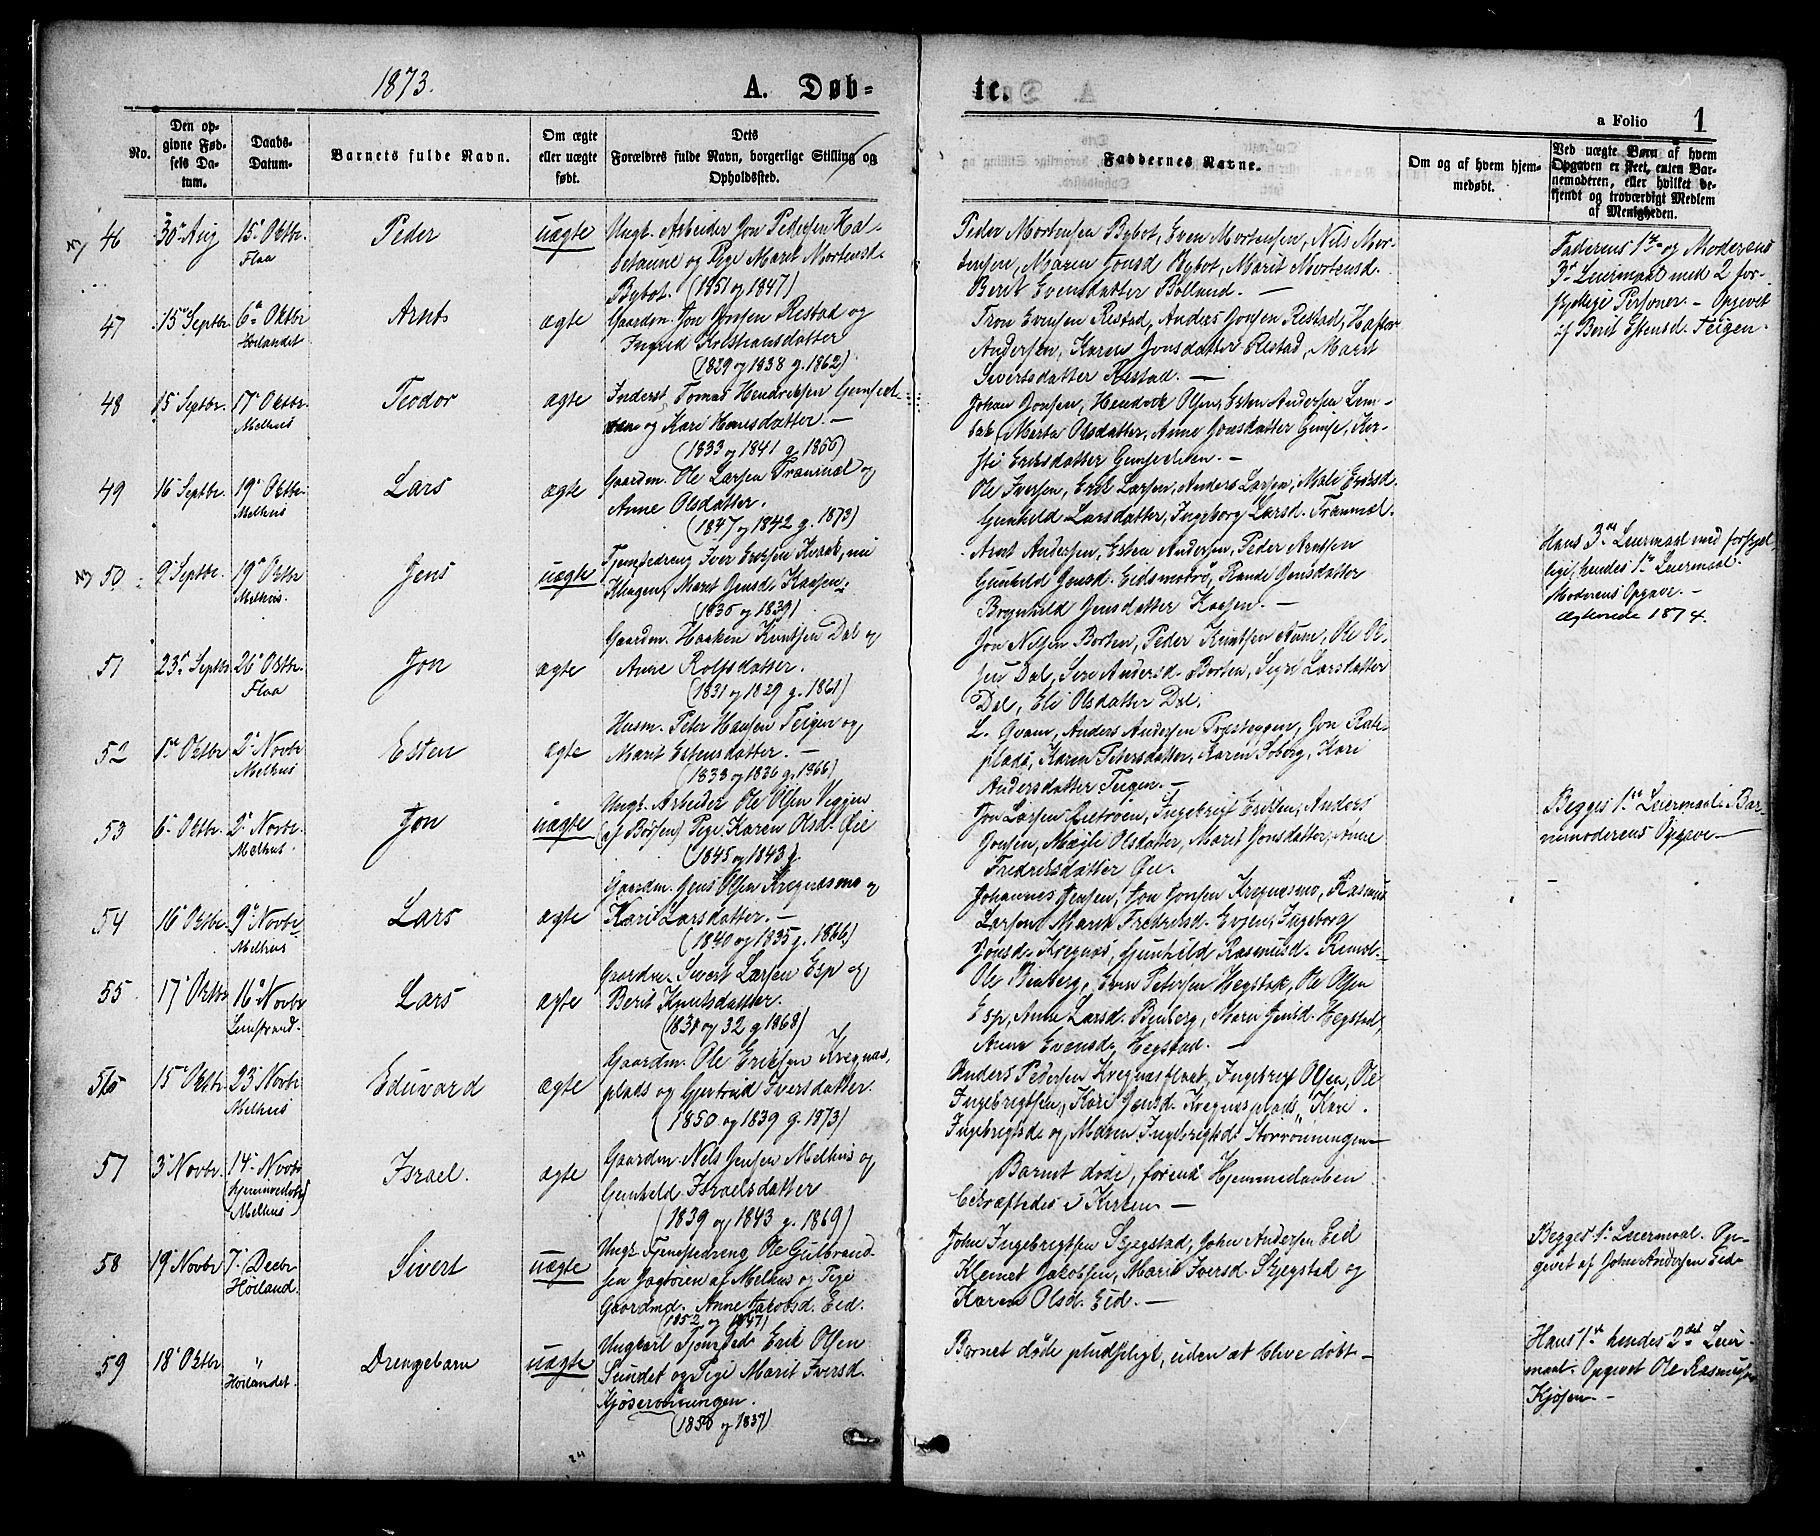 1873.
A. Døb=
te.
a Folio 1
No.
Den op=
givne Fød=
sels Da=
tum.
Daabs=
Datum.
Barnets fulde Navn.
Om ægte
eller uægte
født.
Dets
Forældres fulde Navn, borgerlige Stilling og
Opholdssted.
Faddernes Navne.
Om og af hvem hjem=
medøbt.
Ved uægte Børn af hvem
Opgaven er skeet, enten Bar=
nemoderen, eller hvilket be=
kjendt og troværdigt Medlem
af Menigheden.
46
30 Aug
15 Oktbr.
Flaa
Peder
uægte
Ungk. Arbeider Jon Pedersen
og Pige Marit Mortensd.
Bybot. (1851 og 1847)
Peder Mortensen Bybot, Even Mortensen, Nils Mor-
tensen, Maren Jonsd Bybot, Marit Mortensd.
Berit Evensdatter Bolland. —
Faderens 1ste og Moderens
3. Leiermaal med 2 for-
skjellige Personer. — Opgivet
af Berit Estensd. Teigen.
47
15 Septbr.
6 Oktbr
Höilandet
Arnt
ægte
Gaardm. Jon Jonsen Restad og
Ingrid Kristiansdatter
(1829 og 1838 g. 1862)
Tron Evensen Restad, Anders Jonsen Restad,
Andersen, Karen Jonsdatter Restad, Marit
Sivertsdatter Restad. —
48
15 Septbr.
17 Oktbr.
Melhus
Teodor
ægte
Inderst Tomas Hendriksen
og Kari Hansdatter. —
(1833 og 1841 g. 1866)
Johan Jonsen, Hendrik Olsen, Esten Andersen Lem-
bak, Marta Olsdatter, Anne Jonsdatter Gimse, Ker-
sti Eriksdatter Gimsekleven. —
49
16 Septbr.
19 Oktbr.
Melhus
Lars
ægte
Gaardm. Ole Larsen Tranmæl og
Anne Olsdatter.
(1847 og 1842 g. 1873)
Ole Iversen, Erik Larsen, Anders Larsen, Mali Eriksd.
Gunhild Larsdatter, Ingeborg Larsd. Tranmæl.
50
9 Septbr.
19 Oktbr
Melhus.
Jens
uægte
Tjenstedreng Iver Eriksen Kvaal, nu
Klingen, Marit Jensd. Kaasen.
(1836 og 1839)
Arnt Andersen, Esten Andersen, Peder Arntsen
Gunhild Jensd. Eidsmobrö, Rande Jensdatter
Brynhild Jensdatter Kaasen. —
Hans 3. Leiermaal med forskjel
lige, hendes 1. Leiermaal.
Moderens Opgave. —
Ægteviede 1874.
51
23 Septbr
26 Oktbr
Flaa
Jon
ægte
Gaardm. Haaken Knutsen Dal og
Anne Rolfsdatter.
(1831 og 1829 g. 1861)
Jon Nilsen Borten, Peder Knutsen Aune, Ole Ol-
sen Dal, Siri Andersd. Borten, Sigri Larsdatter
Dal, Eli Olsdatter Dal.
52
1 Oktbr
2 Novbr
Melhus
Esten
ægte
Husm. Peter Hansen Teigen og
Marit Estensdatter. —
(1833 og 1836 g. 1866)
L. Qvam, Anders Andersen Præsteggen, Jon Rate-
plads, Karen Petersdatter, Karen Soberg, Kari
Andersdatter Teigen. —
53
6 Oktbr.
2 Novbr.
Melhus.
Jon
uægte
Ungk. Arbeider Ole Olsen Viggen
(af Börsen) Pige Karen Olsd. Öie
(1845 og 1843)
Jon Larsen, Ingebrigt Eriksen, Anders
Jonsen, Magle Olsdatter, Marit Jonsdatter, Anne
Fredriksdatter Öie.
Begges 1. Leiermaal. Bar-
nemoderens Opgave —
54
16 Oktbr.
9 Novbr
Melhus
Lars
ægte
Gaardm. Jens Olsen Kregnæsmo og
Kari Larsdatter. —
(1840 og 1835 g. 1866)
Johannes Jensen, Jon Jonsen Kregnæsmo, Rasmus
Larsen, Marit Fredriksd. Evjen, Ingeborg
Jonsd. Kregnæs, Gunhild Rasmusd. Remol. —
55
17 Oktbr
16 Novbr
Leinstrand.
Lars
ægte
Gaardm. Sivert Larsen Esp og
Berit Knutsdatter.
(1831 og 32 g 1868)
Ole Benberg, Even Petersen Hegstad, Ole Olsen
Esp, Anne Larsd. Benberg, Marit Jensd. Hegstad,
Anne Evensd. Hegstad. —
56
15 Oktbr
23 Novbr
Melhus
Eduvard
ægte
Gaardm. Ole Eriksen Kregnæs-
plads og Gjertrud Iversdatter.
(1850 og 1839 g. 1873)
Anders Pedersen Kregnæsflaat, Ingebrigt Olsen, Ole
Ingebrigtsen, Kari Jensd. Kregnæsplads, Kari
Ingebrigtsd. og Maren Ingebrigtsd. Storrönningen —
57
3 Novbr.
14 Novbr
(hjemmedöbt)
Melhus
Israel.
ægte
Gaardm. Nils Jensen Melhus og
Gunhild Israelsdatter
(1839 og 1843 g. 1869)
Barnet döde, förend Hjemmedaaben
bekræftedes i Kirken. —
58
19 Novbr
7 Decbr
Höiland.
Sivert
uægte
Ungk. Tjenstedreng Ole Gulbrand-
sen Jagtöien af Melhus og Pige
Gaardmd. Anne Jakobsd. Eid.
(1852 og 1847)
John Ingebrigtsen Skjegstad, John Andersen Eid
Klemet Jakobsen, Marit Iversd. Skjegstad og
Karen Olsd. Eid. —
Begges 1. Leiermaal. Op-
givet af John Andersen Eid.
59
18 Oktbr
"
Höilandet.
Drengebarn
uægte
Ungkarl Tjenstedr. Erik Olsen
Sundet og Pige Marit Iversd.
Kjöserönningen.
(1850 og 1837)
Barnet döde pludseligt, uden at blive döbt —
Hans 1. hendes 2det Leier-
maal. Opgivet Ole Rasmussen
Kjösen. —